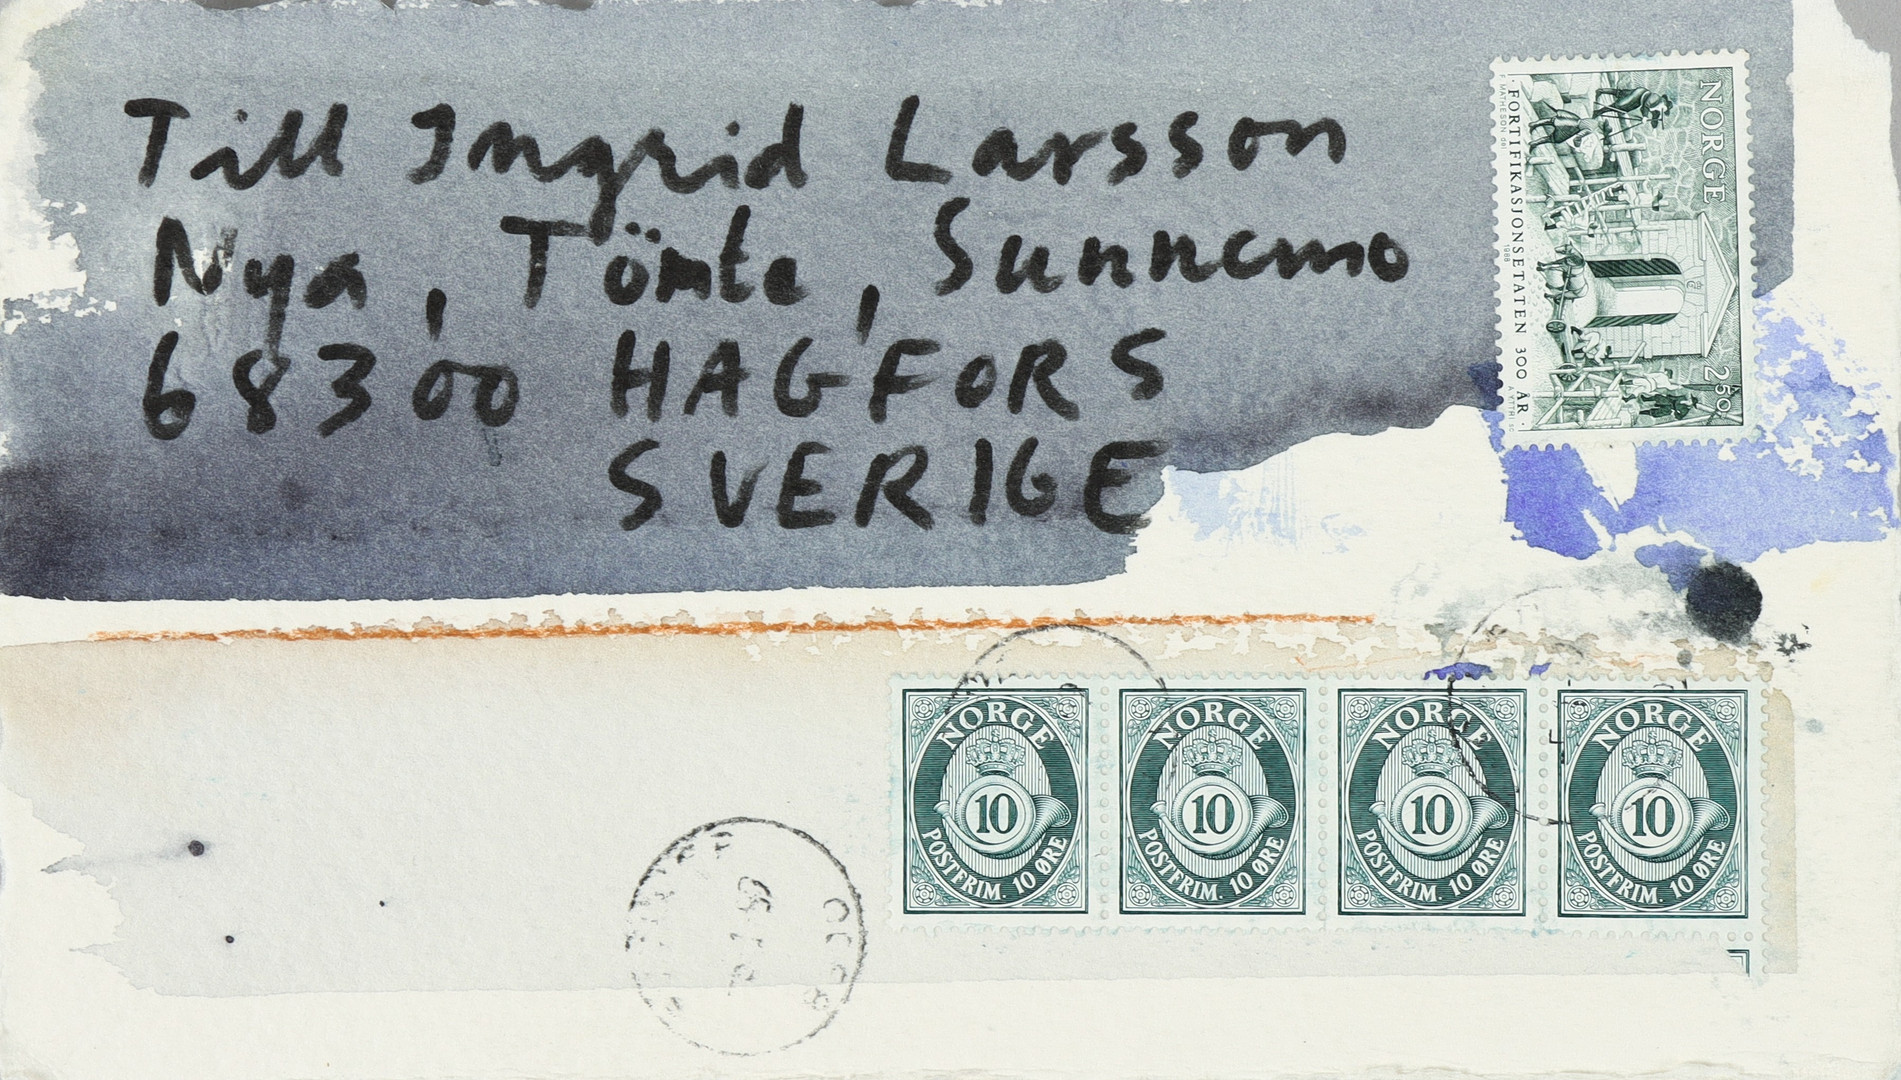 Till Ingrid Larsson
Nya, Tömte, Sunnemo
68300 HAGFORS
SVERIGE
NORGE
2.50
FORTIFIKASJONSETATEN 300 ÅR
1988
NORGE
10
POSTFRIM. 10 ØRE
NORGE
10
POSTFRIM. 10 ØRE
NORGE
10
POSTFRIM. 10 ØRE
NORGE
10
POSTFRIM. 10 ØRE